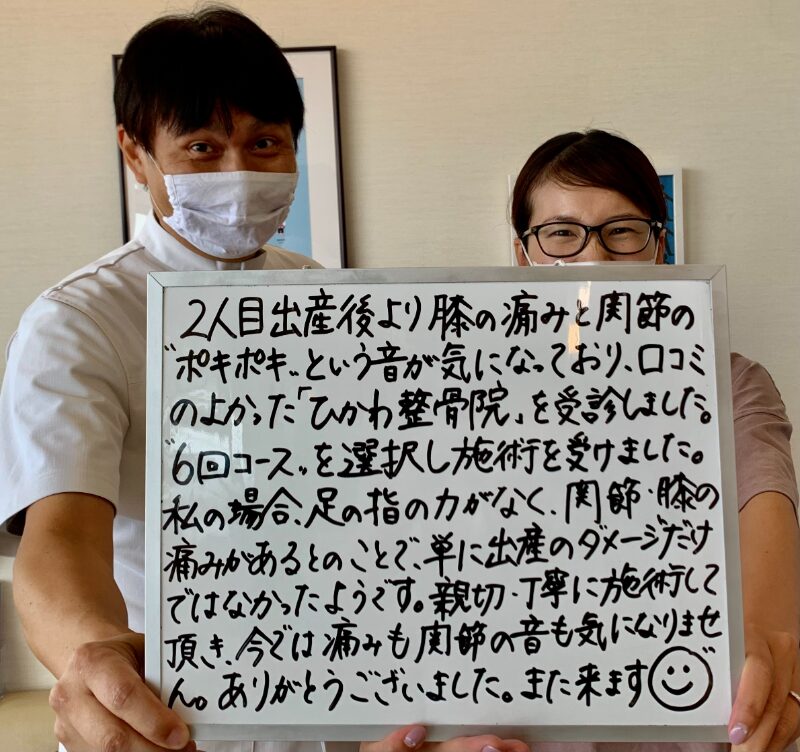 2人目出産後より膝の痛みと関節の
"ポキポキ"という音が気になっており、口コミ
のよかった「ひかわ整骨院」を受診しました。
"6回コース"を選択し施術を受けました。
私の場合、足の指の力がなく、関節・膝の
痛みがあるとのことで、単に出産のダメージだけ
ではなかったようです。親切・丁寧に施術して
頂き、今では痛みも関節の音も気になりませ
ん。ありがとうございました。また来ます